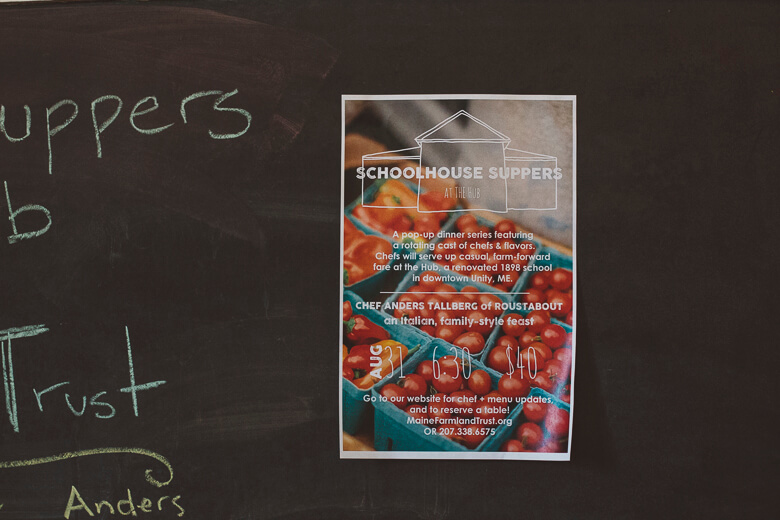 uppers
b
Trust
Anders
SCHOOLHOUSE SUPPERS
AT THE HUB
A pop-up dinner series featuring
a rotating cast of chefs & flavors.
Chefs will serve up casual, farm-forward
fare at the Hub, a renovated 1898 school
in downtown Unity, ME.
CHEF ANDERS TALLBERG of ROUSTABOUT
an Italian, family-style feast
AUG 31 6:30 $40
Go to our website for chef + menu updates,
and to reserve a table!
MaineFarmlandTrust.org
OR 207.338.6575